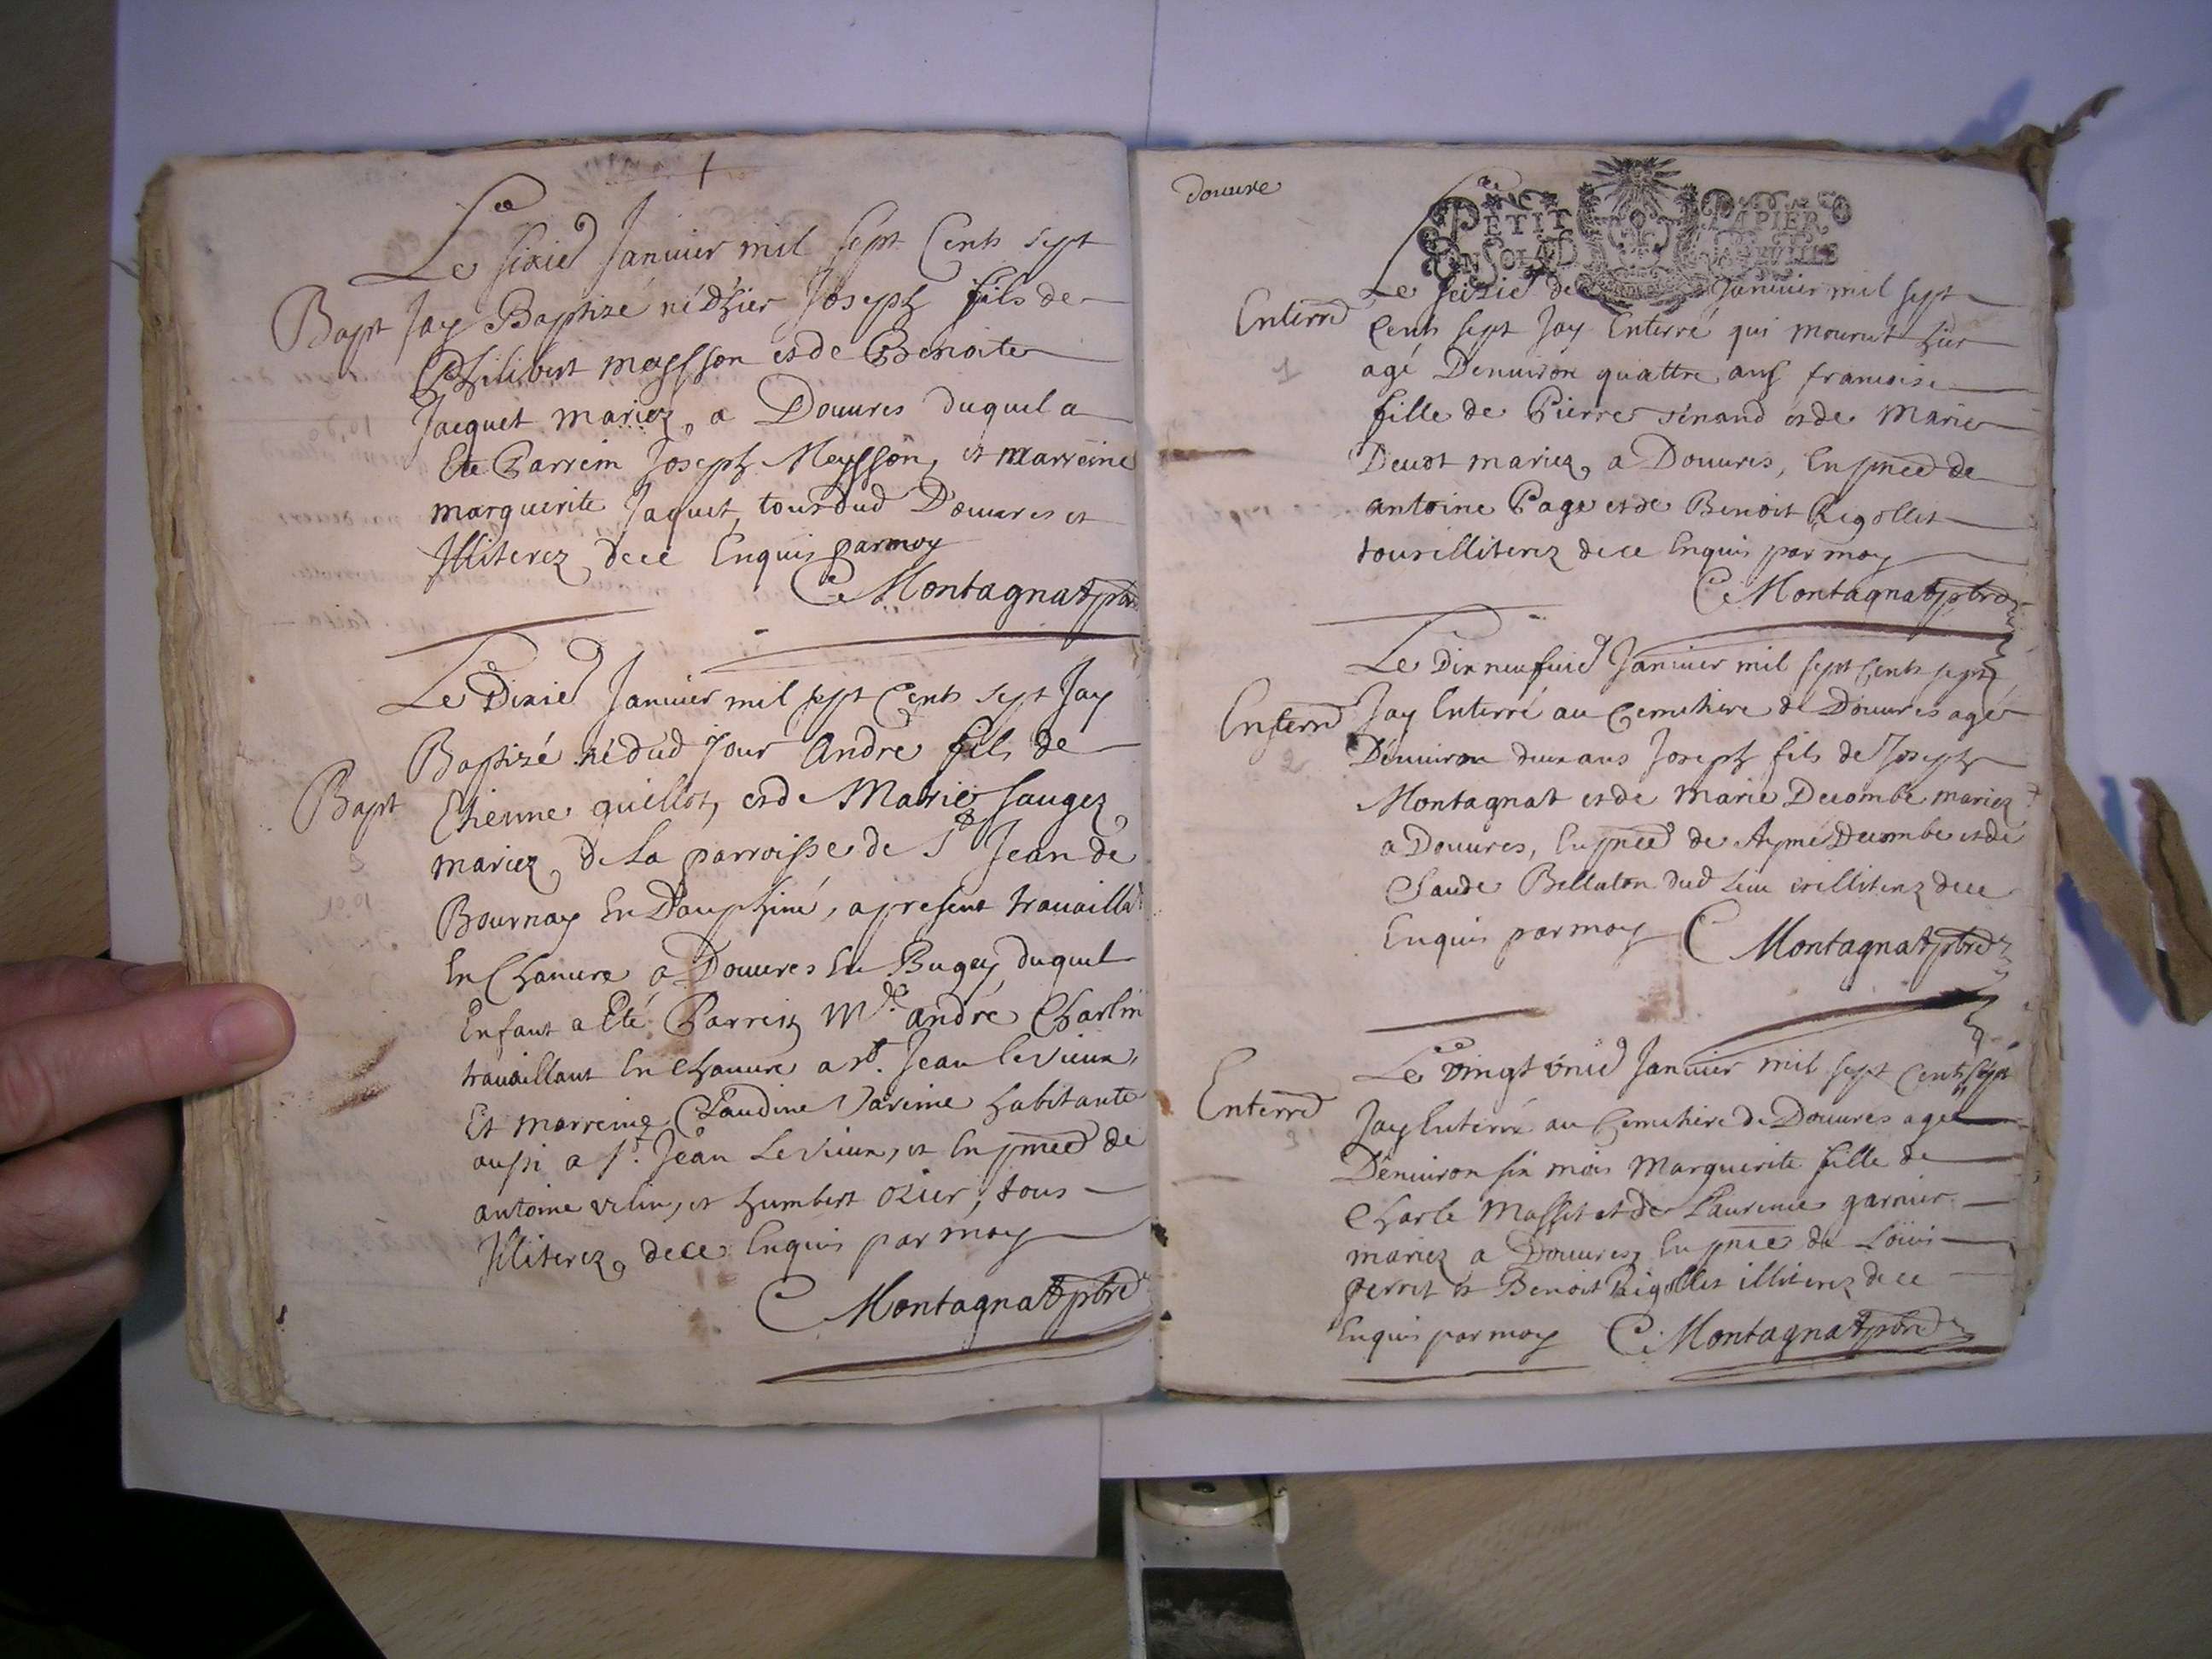 Le sixie Januier mil sept Cents sept
Bapt Jay Baptizé né d'hier Joseph fils de
Philibert meysson et de Benoite
Jacquet mariez, a Douures duquel a
Ete Parrein Joseph Meysson, et marreine
marguerite Jaquet, tous dud Douures et
Illiterez, de ce Enquis par moy
C Montagnat ptre
Le Dixie Januier mil sept Cents sept Jay
Baptizé né dud jour André fils de
Bapt Etienne quillot, et de Marie saugez
mariez, de La parroisse de St Jean de
Bournay En Dauphiné, apresent trauaillt
En Chanure a Douures En Bugey, duquel
Enfant a Eté Parrein Mre andré Charlin
trauaillant En Chanure a st. Jean le vieux,
Et marreine Claudine Varime habitante
aussi a st. Jean Le vieux, et En pnce de
antoine velin, et humbert ozier, tous
Illiterez, de ce Enquis par moy
C Montagnat ptre
douure
PETIT PAPIER
UN SOL 4 D LA FEUILLE
Le seizie de Januier mil sept
Enterré Cents sept Jay Enterré qui mourut hier
1
agé Denuiron quattre ans francoise
fille de Pierre senand et de Marie
Deuot mariez, a Douures, En pnce de
antoine Page et de Benoit Rigollet
tous illiterez de ce Enquis par moy
C Montagnat ptre
Le Dixneufuie Januier mil sept Cents sept
Enterré Jay Enterré au Cemethiere de Douures agé
2
D'enuiron deux ans Joseph fils de Joseph
Montagnat et de Marie Decombe mariez
a Douures, En pnce de Aymé Decombe et de
Claude Bellaton dud Lieu illiterez de ce
Enquis par moy C Montagnat ptre
Le vingt vnie Januier mil sept Cents sept
Enterré Jay Enterré au Cemethiere de Douures agee
3
D'enuiron six mois Marguerite fille de
Charle Masset et de Laurence garnier
mariez a Douures, En pnce de Loüis
perret et Benoit Rigollet illiterez de ce
Enquis par moy C Montagnat ptre